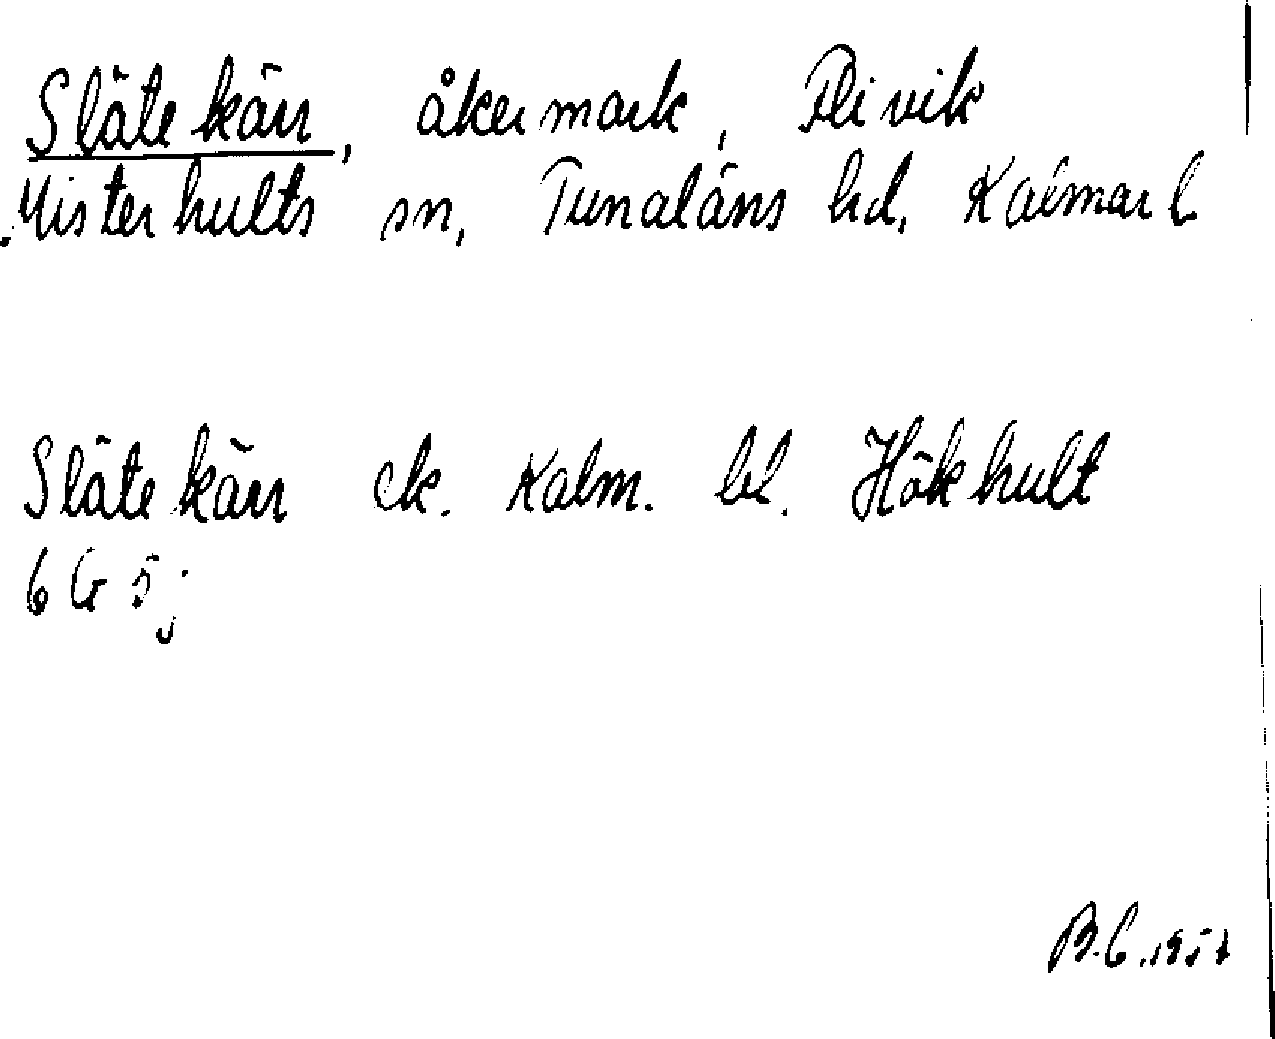 Slätekärr, åkermark, Flivik
Misterhults sn, Tunaläns hd, Kalmar l
Slätekärr ek. Kalm. bl. Hökhult
6 G 5 j
B.C. 1957